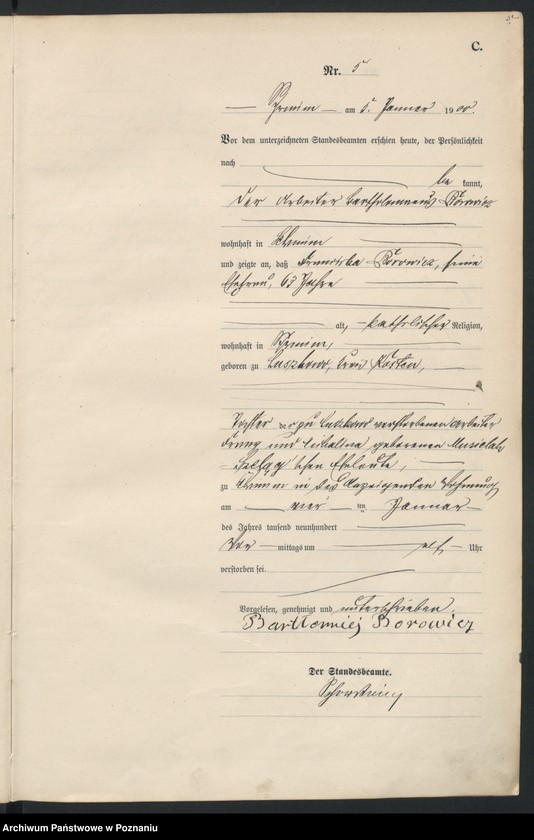 C.
Nr. 5
Schrimm am 5. Januar 1900.
Vor dem unterzeichneten Standesbeamten erschien heute, der Persönlichkeit
nach
be kannt,
der Arbeiter Bartholomaeus Borowicz
wohnhaft in Schrimm
und zeigte an, daß Franciska Borowicz, seine
Ehefrau, 63 Jahre
alt, katholischer Religion,
wohnhaft in Schrimm,
geboren zu Kreis Kosten,
Tochter der zu verstorbenen Arbeiter
Franz und geborenen Musielak
'schen Eheleute,
zu Schrimm in des Anzeigenden Wohnung
am vier ten Januar
des Jahres tausend neunhundert
Vor mittags um elf Uhr
verstorben sei.
Vorgelesen, genehmigt und unterschrieben.
Bartłomiej Borowicz
Der Standesbeamte.
Archiwum Państwowe w Poznaniu